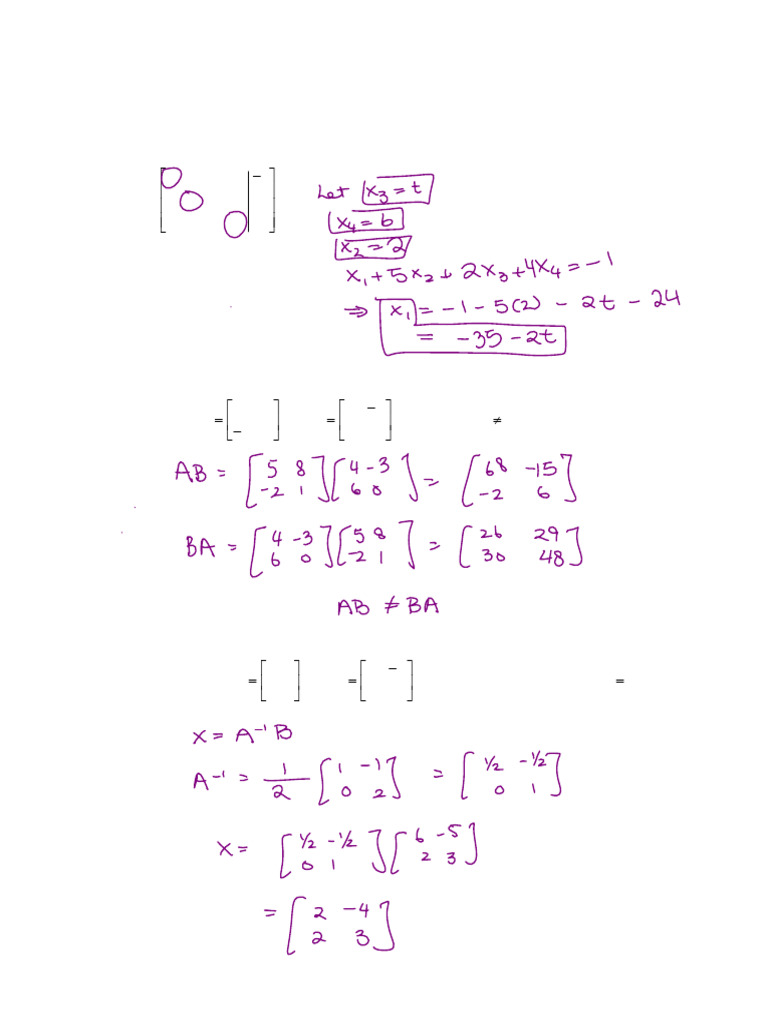 Let x₃ = t
x₄ = 6
x₂ = 2
x₁ + 5x₂ + 2x₃ + 4x₄ = -1
⇒ x₁ = -1 - 5(2) - 2t - 24
= -35 - 2t
= [ - ] = [ - ] ≠
AB = [5 8; -2 1][4 -3; 6 0] = [68 -15; -2 6]
BA = [4 -3; 6 0][5 8; -2 1] = [26 29; 30 48]
AB ≠ BA
= [ ] = [ - ] =
X = A⁻¹B
A⁻¹ = 1/2 [1 -1; 0 2] = [1/2 -1/2; 0 1]
X = [1/2 -1/2; 0 1][6 -5; 2 3]
= [2 -4; 2 3]